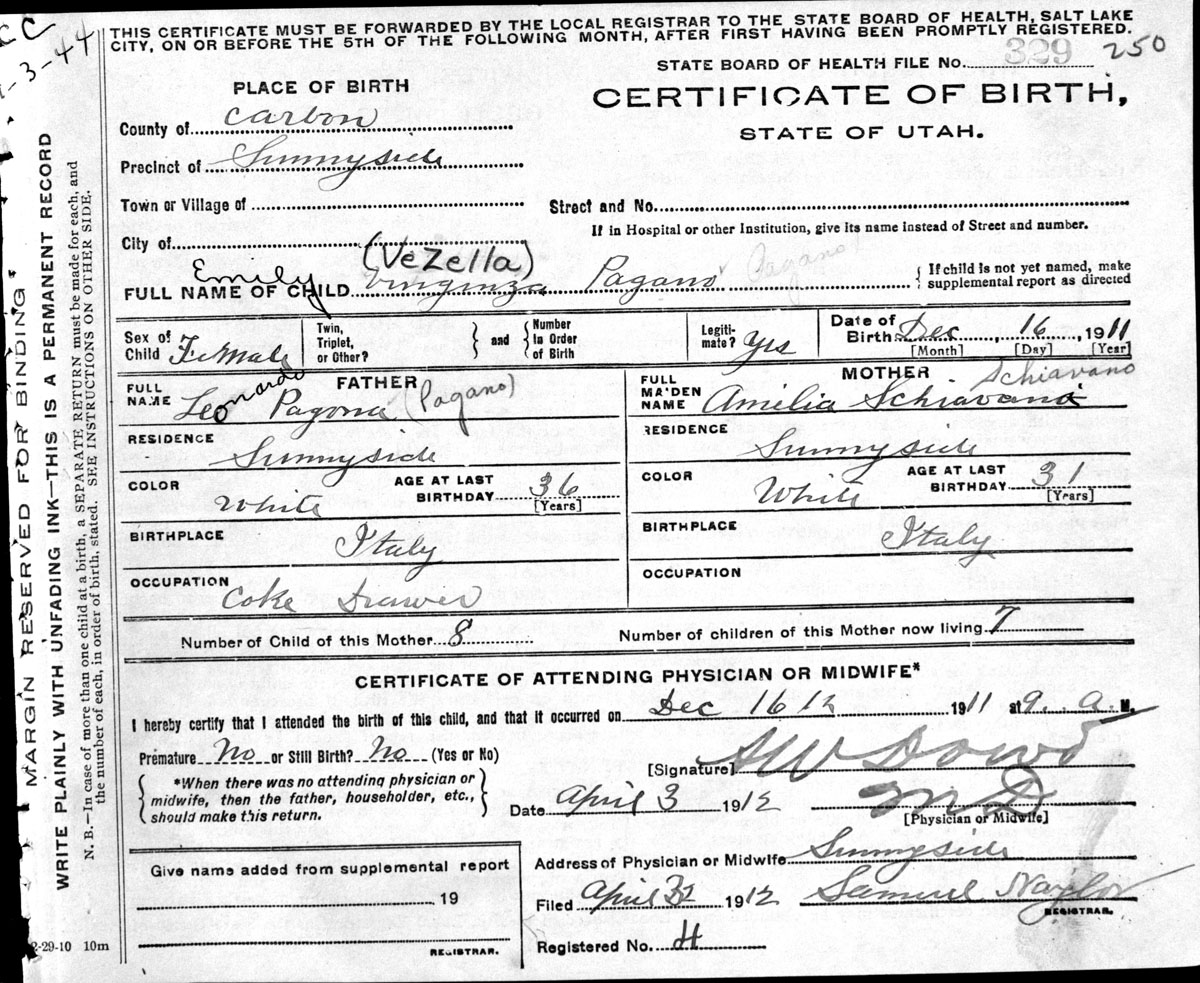 THIS CERTIFICATE MUST BE FORWARDED BY THE LOCAL REGISTRAR TO THE STATE BOARD OF HEALTH, SALT LAKE
CITY, ON OR BEFORE THE 5TH OF THE FOLLOWING MONTH, AFTER FIRST HAVING BEEN PROMPTLY REGISTERED.
3-44
STATE BOARD OF HEALTH FILE No. 329 250
PLACE OF BIRTH
CERTIFICATE OF BIRTH,
STATE OF UTAH.
County of Carbon
Precinct of Sunnyside
Town or Village of
Street and No.
If in Hospital or other Institution, give its name instead of Street and number.
City of
Emily (VeZella)
FULL NAME OF CHILD Virginza Pagano Pagano
{ If child is not yet named, make
supplemental report as directed
Sex of
Child FeMale
Twin,
Triplet,
or Other?
} and {
Number
in Order
of Birth
Legiti-
mate? Yes
Date of
Birth Dec, 16, 1911
[Month] [Day] [Year]
FATHER
FULL
NAME Leonardo Pagona (Pagano)
RESIDENCE
Sunnyside
COLOR White
AGE AT LAST
BIRTHDAY 36
[Years]
BIRTHPLACE
Italy
OCCUPATION
Coke Drawer
MOTHER Schiavano
FULL
MAIDEN
NAME Amelia Schiavana
RESIDENCE
Sunnyside
COLOR White
AGE AT LAST
BIRTHDAY 31
[Years]
BIRTHPLACE
Italy
OCCUPATION
Number of Child of this Mother 8
Number of children of this Mother now living 7
CERTIFICATE OF ATTENDING PHYSICIAN OR MIDWIFE*
I hereby certify that I attended the birth of this child, and that it occurred on Dec 16 12 1911 at 9. a. M.
Premature No or Still Birth? No (Yes or No)
{ *When there was no attending physician or
midwife, then the father, householder, etc.,
should make this return. }
[Signature] AW Dowd
Date April 3 1912
MD
[Physician or Midwife]
Give name added from supplemental report
19
REGISTRAR.
Address of Physician or Midwife Sunnyside
Filed April 1912 Samuel Naylor
REGISTRAR.
Registered No. 4
2-29-10 10m
MARGIN RESERVED FOR BINDING
WRITE PLAINLY WITH UNFADING INK—THIS IS A PERMANENT RECORD
N. B.—In case of more than one child at a birth, a SEPARATE RETURN must be made for each, and
the number of each, in order of birth, stated. SEE INSTRUCTIONS ON OTHER SIDE.